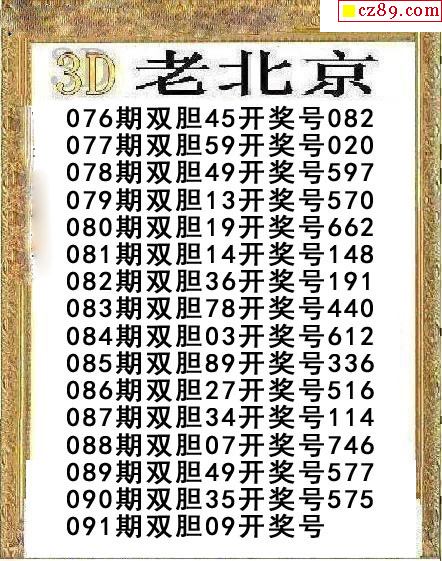 cz89.com
3D 老北京
076期双胆45开奖号082
077期双胆59开奖号020
078期双胆49开奖号597
079期双胆13开奖号570
080期双胆19开奖号662
081期双胆14开奖号148
082期双胆36开奖号191
083期双胆78开奖号440
084期双胆03开奖号612
085期双胆89开奖号336
086期双胆27开奖号516
087期双胆34开奖号114
088期双胆07开奖号746
089期双胆49开奖号577
090期双胆35开奖号575
091期双胆09开奖号